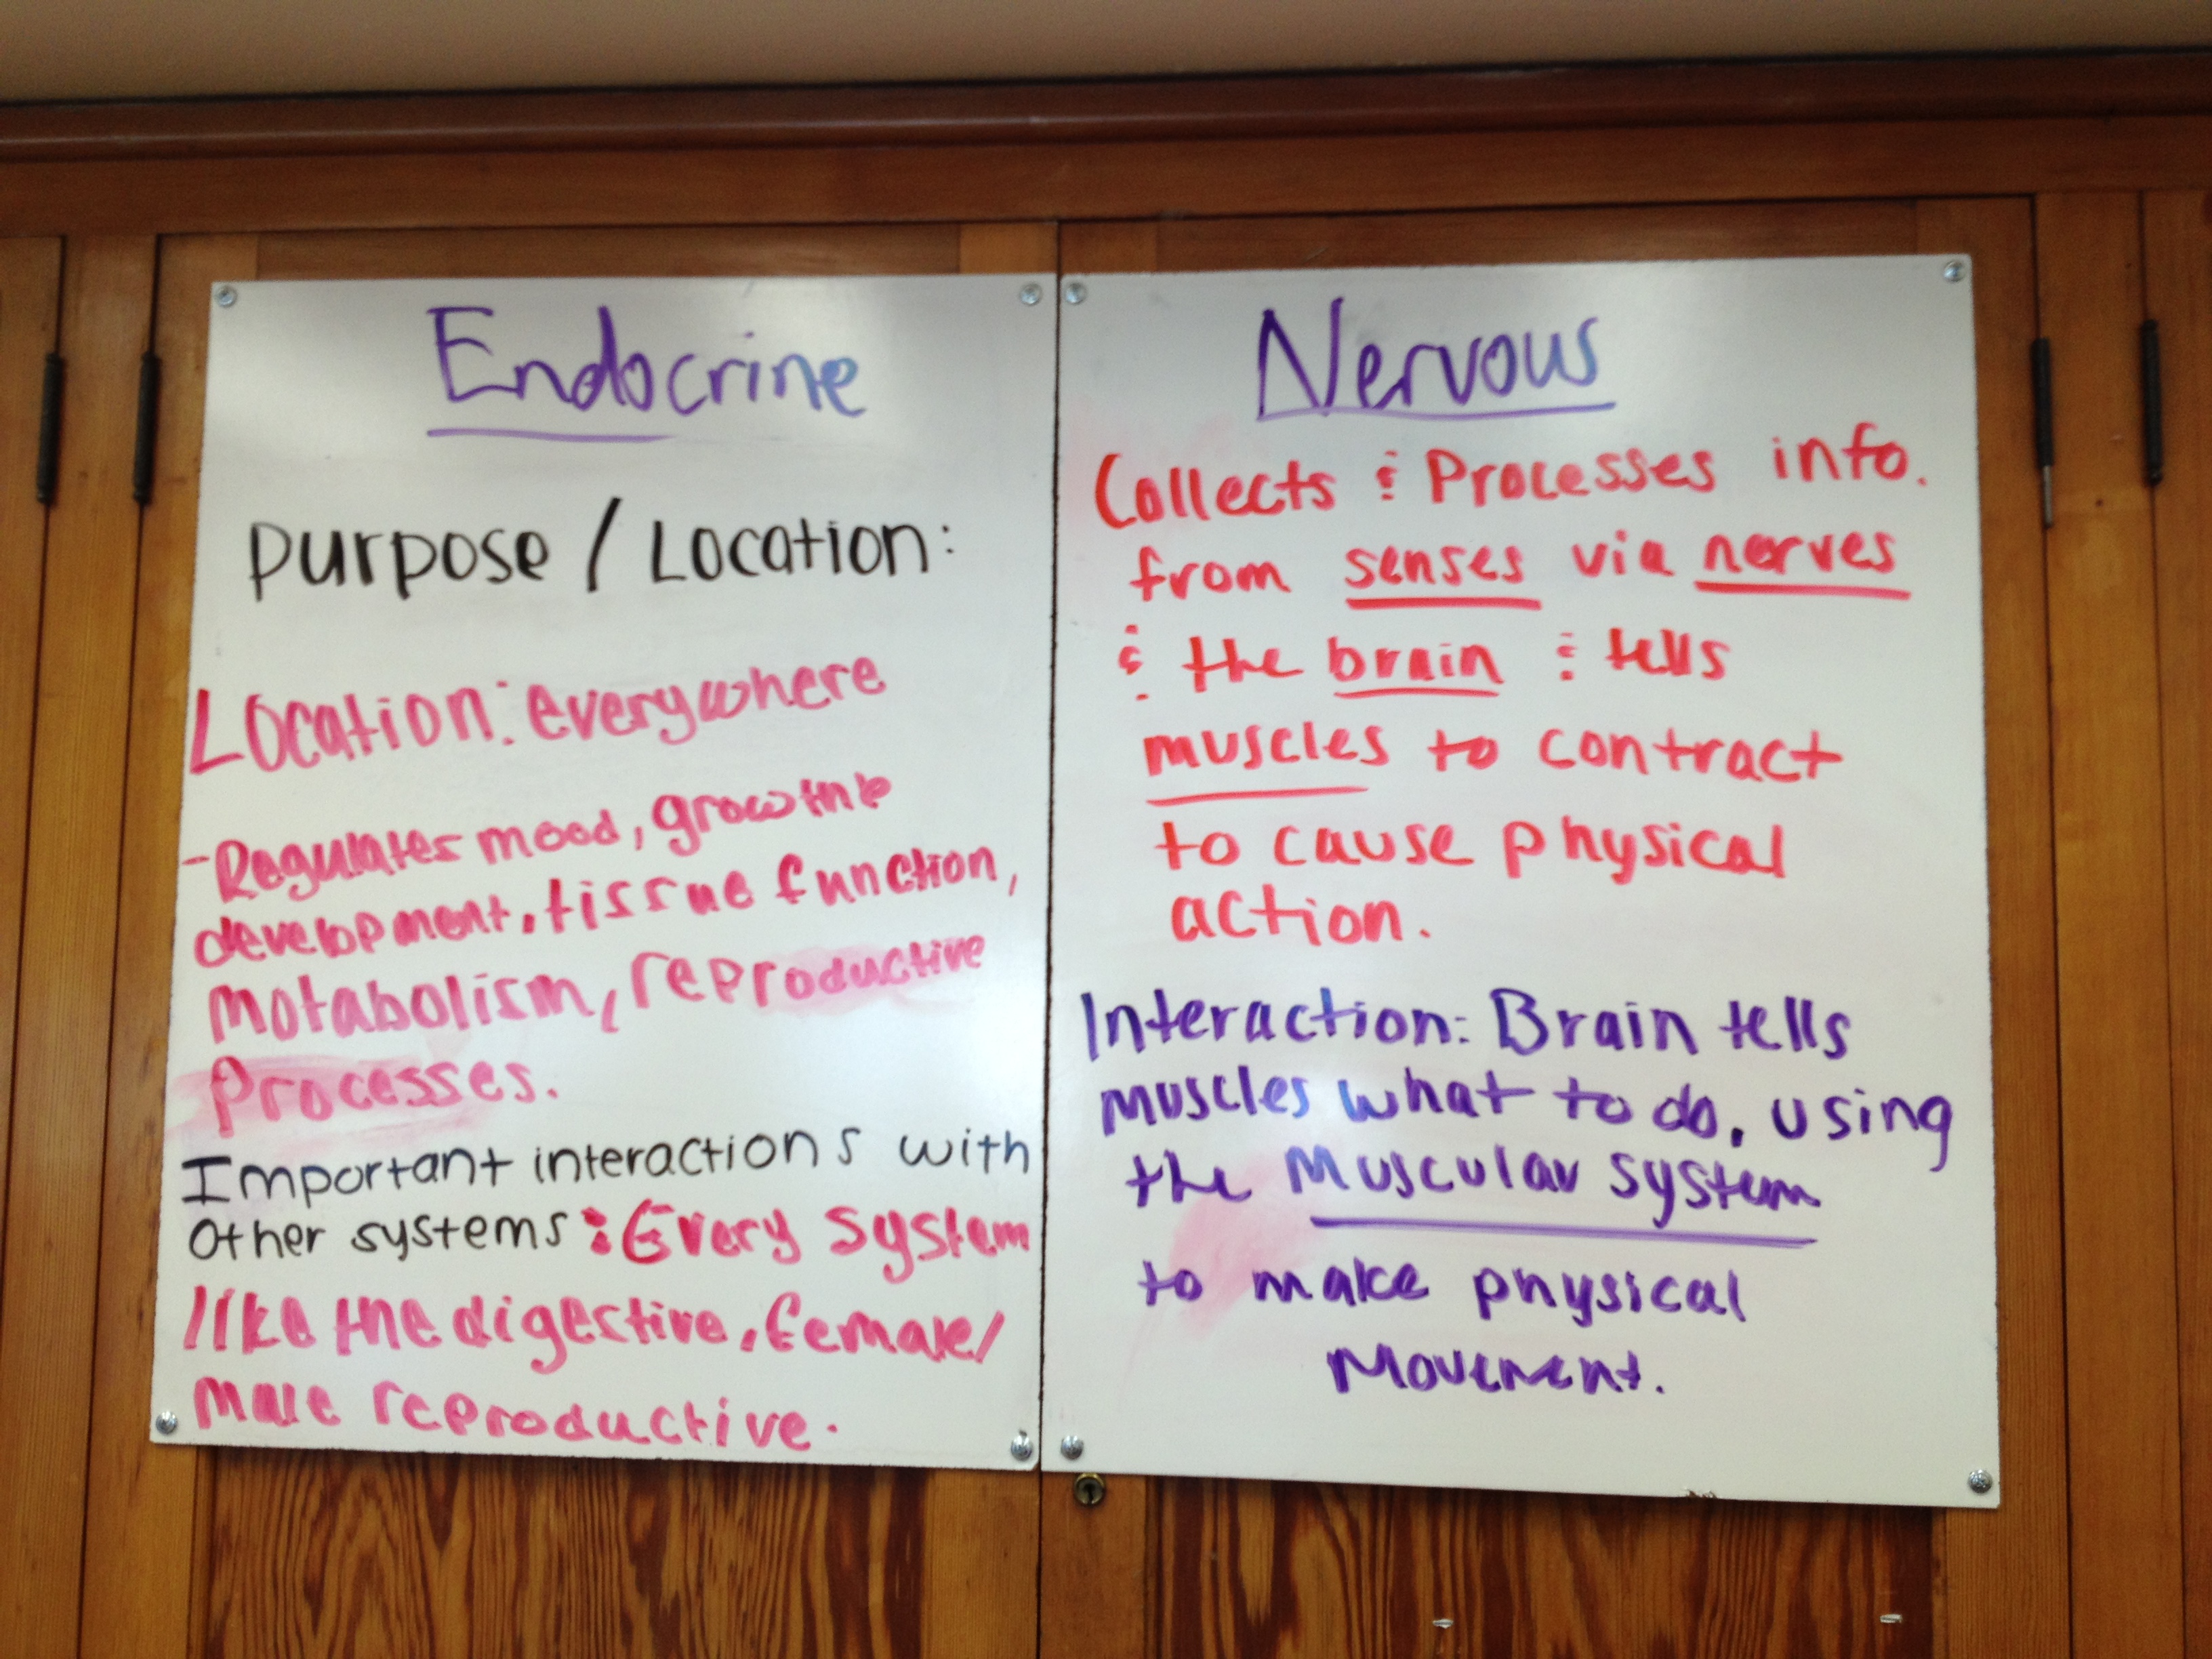 Endocrine
Purpose / Location:
Location: everywhere
- Regulates mood, growth &
development, tissue function,
Motabolism, reproductive
Processes.
Important interactions with
other systems: Every system
like the digestive, female/
male reproductive.
Nervous
Collects & Processes info.
from senses via nerves
& the brain & tells
muscles to contract
to cause physical
action.
Interaction: Brain tells
muscles what to do, using
the Muscular system
to make physical
Movement.